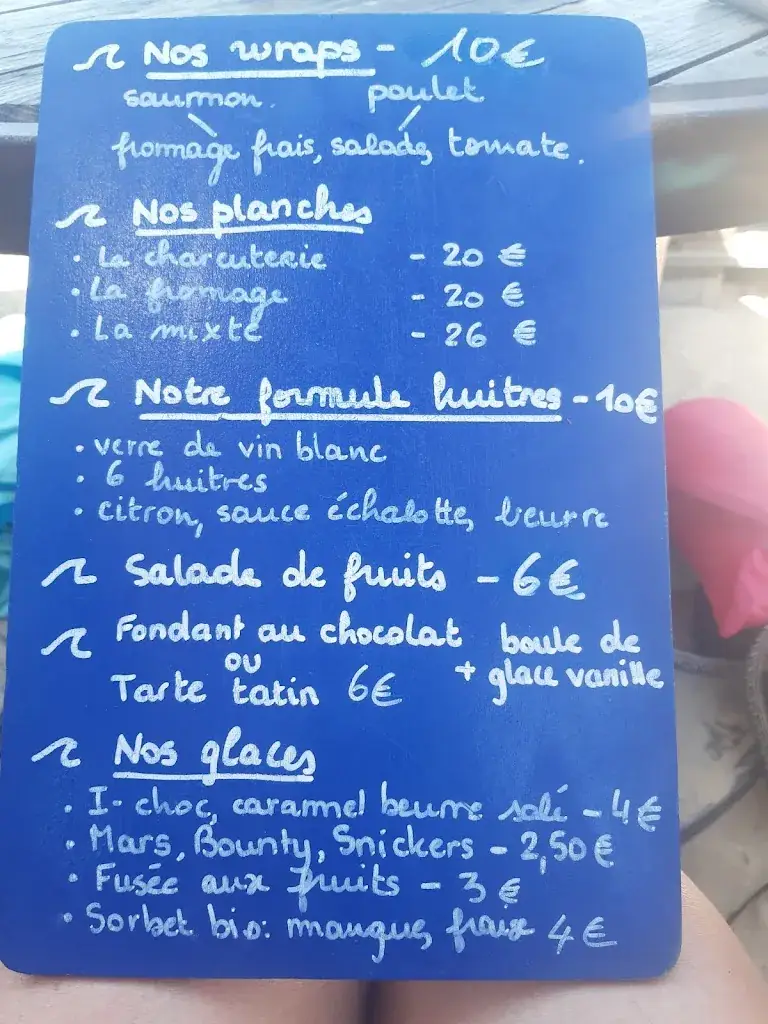 Nos wraps - 10€
saumon. poulet
frommage frais, salade, tomate.
Nos planches
• La charcuterie - 20 €
• La fromage - 20 €
• La mixte - 26 €
Notre formule huitres - 10€
• verre de vin blanc
• 6 huitres
• citron, sauce échalotte, beurre
Salade de fruits - 6€
Fondant au chocolat boule de
ou + glace vanille
Tarte tatin 6€
Nos glaces
• I-choc, carammel beurre salé - 4€
• Mars, Bounty, Snickers - 2,50€
• Fusée aux fruits - 3€
• Sorbet bio: mangue, fraise 4€